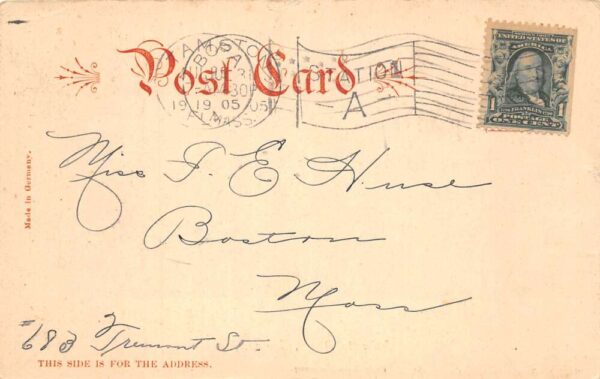 Post Card
BOSTON
1905
MASS.
STATION
A
UNITED STATES OF
FRANKLIN
1 POSTAGE 1
ONE CENT
Made in Germany.
Miss F. E Huse
Boston
Mass
#683 Tremont St.
THIS SIDE IS FOR THE ADDRESS.